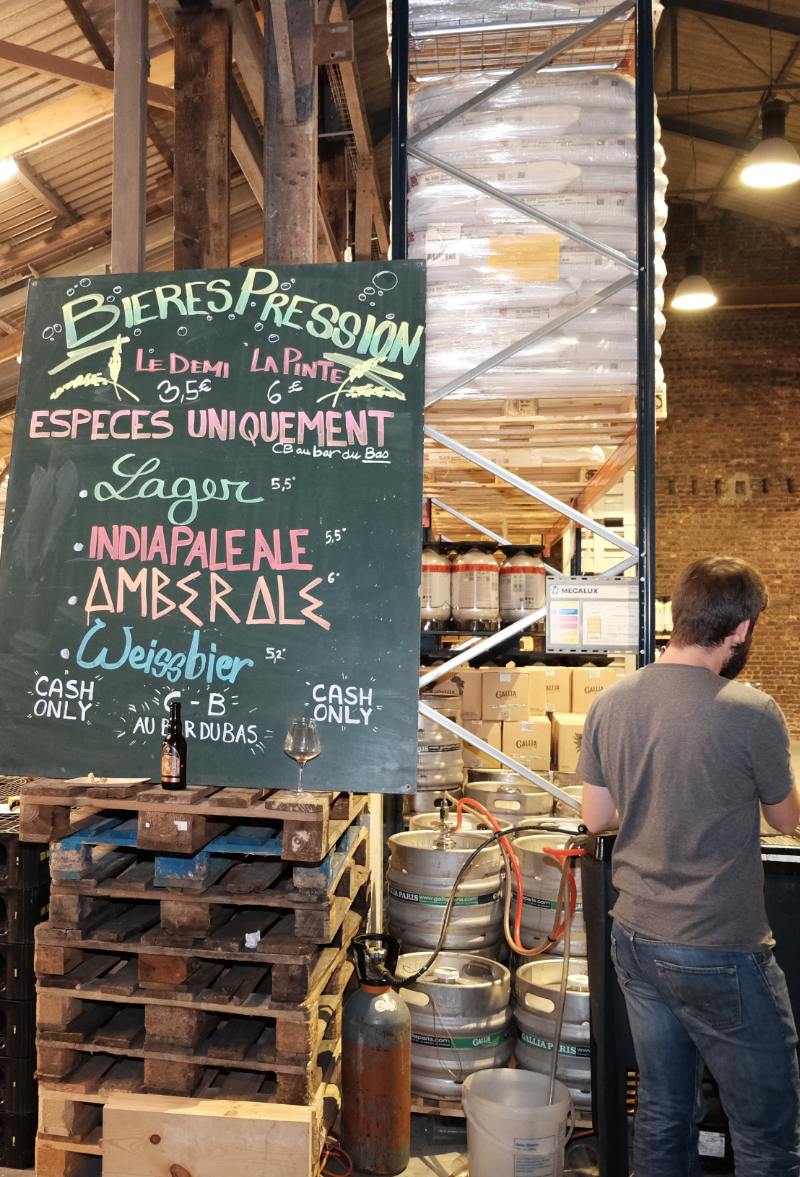 BIERES PRESSION
LE DEMI LA PINTE
3,5€ 6€
ESPECES UNIQUEMENT
CB au bar du Bas
Lager 5,5°
INDIA PALE ALE 5,5°
AMBER ALE 6°
Weissbier 5,2°
CASH ONLY
C-B
AU BAR DU BAS
CASH ONLY
MECALUX
GALLIA
GALLIA
GALLIA PARIS www.galliaparis.com
GALLIA PARIS